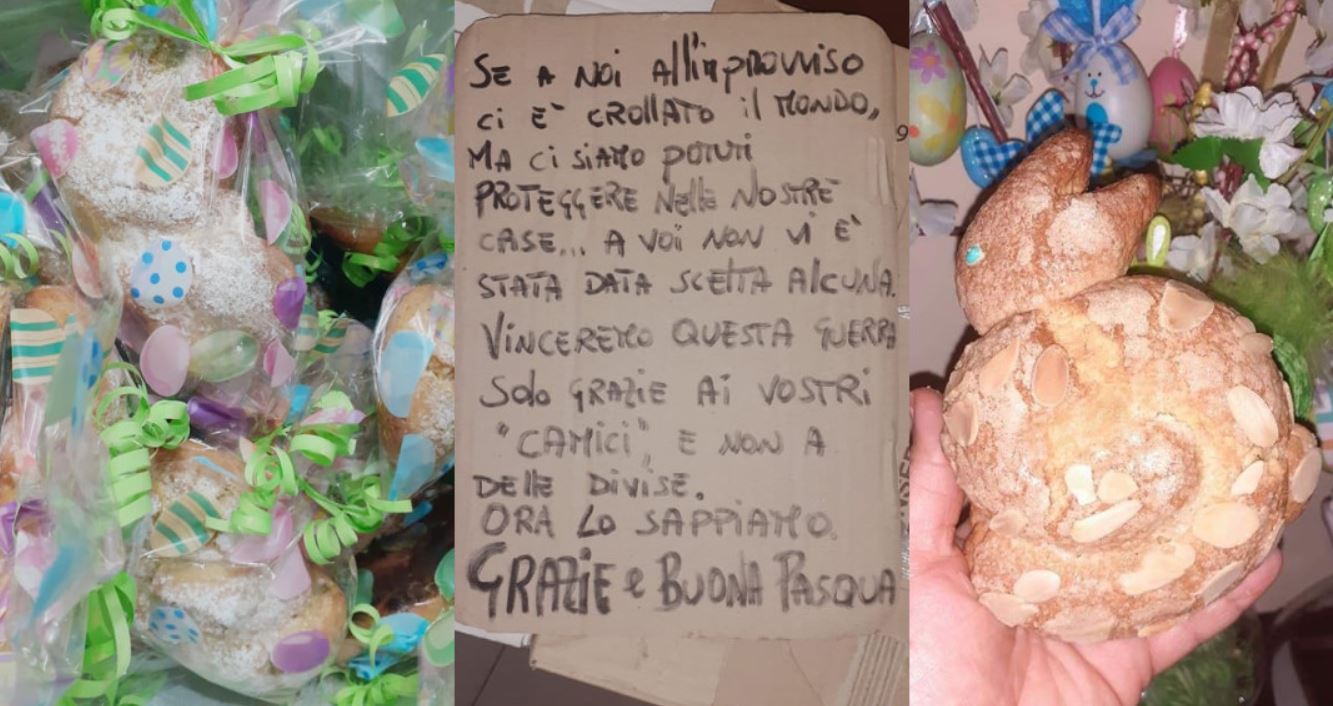 SE A NOI All'improvviso
ci E' CROllATO il MONDO,
MA ci SIAMO POTUTI
PROTEGGERE Nelle NOSTRE
CASE... A VOI NON VI E'
STATA DATA SCELTA AlCUNA.
VINCEREMO QUESTA GUERRA
Solo GRAZIE Ai VOSTRI
"CAMICI", E NON A
DEllE DIVISE.
ORA LO SAPPIAMO.
GRAZIE e BUONA PASQUA